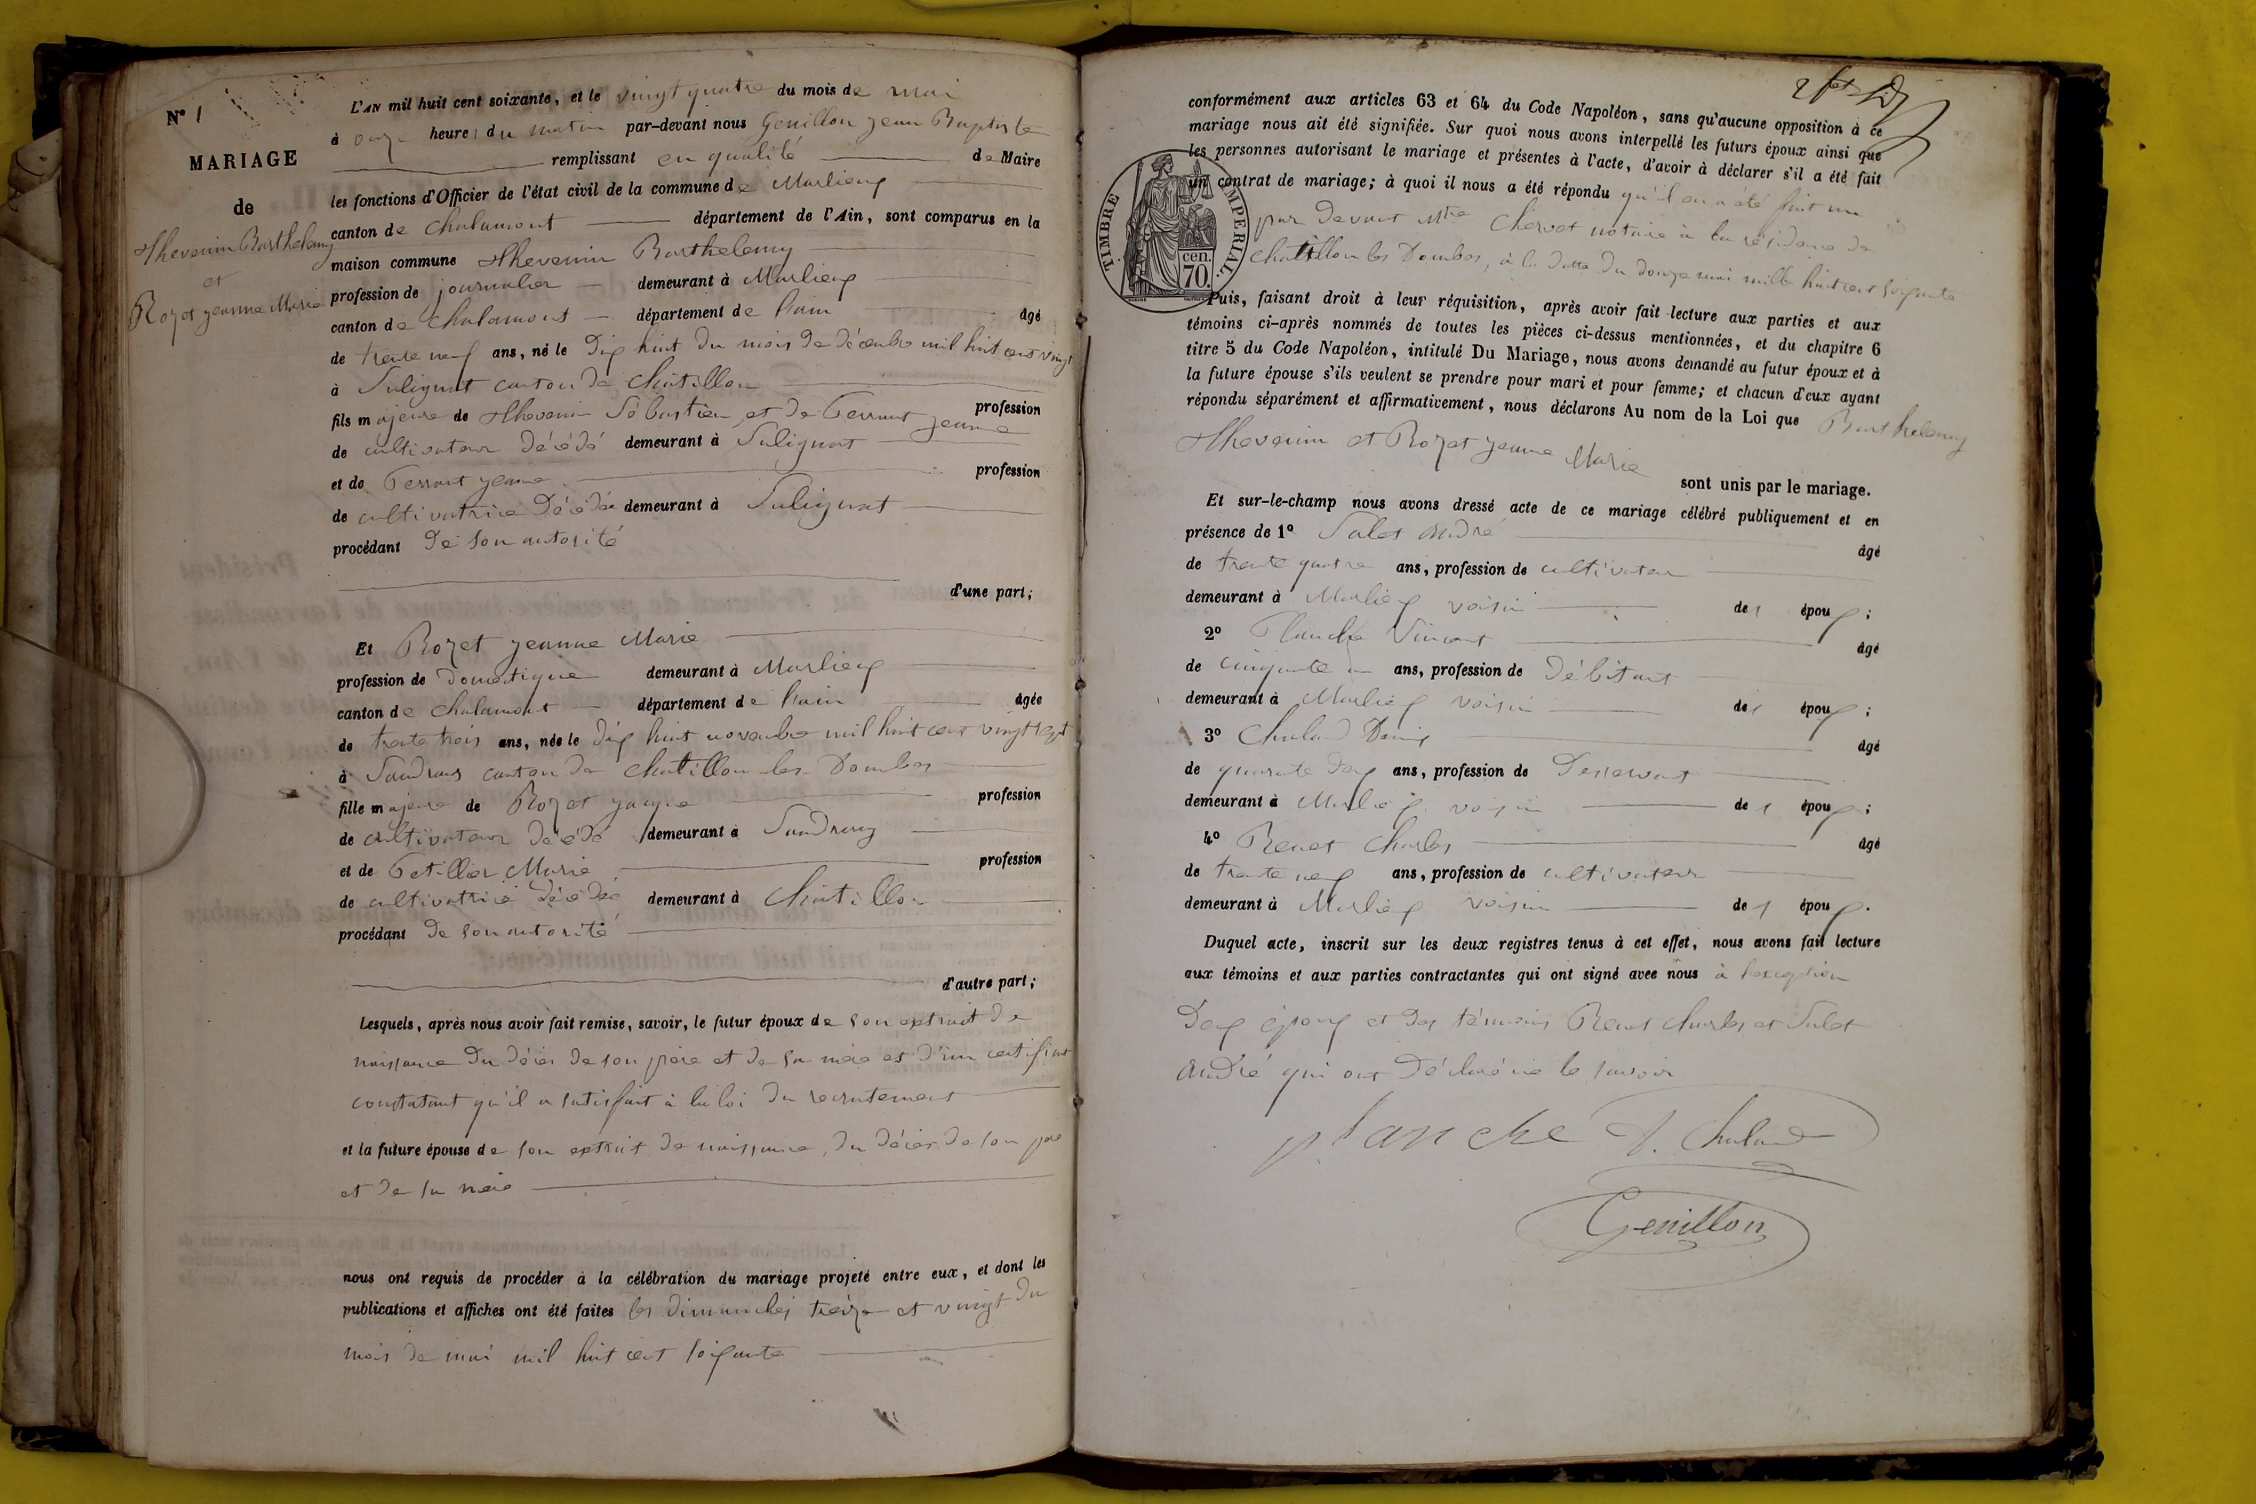 N° 1
MARIAGE
de
Thevenin Barthelemy
et
Rozet jeanne Marie
L'AN mil huit cent soixante, et le vingt quatre du mois de mai
à onze heure du matin par-devant nous Genillon jean Baptiste
remplissant en qualité de Maire
les fonctions d'Officier de l'état civil de la commune de Marlieux
canton de chalamont département de l'Ain, sont comparus en la
maison commune Thevenin Barthelemy
profession de journalier demeurant à Marlieux
canton de chalamont département de l'ain âgé
de trente neuf ans, né le dix huit du mois de décembre mil huit cent vingt
à Sulignat canton de châtillon
fils majeure de Thevenin Sébastien et de Ferrant jeanne profession
de cultivateur décédé demeurant à Sulignat
et de Ferrant jeanne profession
de cultivatrice décédée demeurant à Sulignat
procédant de son autorité
d'une part;
Et Rozet jeanne Marie
profession de domestique demeurant à Marlieux
canton de chalamont département de l'ain âgée
de trente trois ans, née le dix huit novembre mil huit cent vingt sept
à Sandrans canton de chatillon les Dombes
fille majeure de Rozet jacque profession
de cultivateur décédé demeurant à Sandrans
et de Petillier Marie profession
de cultivatrice décédée demeurant à chatillon
procédant de son autorité
d'autre part;
Lesquels, après nous avoir fait remise, savoir, le futur époux de son extrait de
naissance du décès de son père et de sa mère et d'un certificat
constatant qu'il a satisfait à la loi du recrutement
et la future épouse de son extrait de naissance, du décès de son père
et de sa mère
nous ont requis de procéder à la célébration du mariage projeté entre eux, et dont les
publications et affiches ont été faites les dimanches treize et vingt du
mois de mai mil huit cent soixante
conformément aux articles 63 et 64 du Code Napoléon, sans qu'aucune opposition à ce
mariage nous ait été signifiée. Sur quoi nous avons interpellé les futurs époux ainsi que
les personnes autorisant le mariage et présentes à l'acte, d'avoir à déclarer s'il a été fait
un contrat de mariage; à quoi il nous a été répondu qu'il en a été fait un
par devant Mtre Chervet notaire à la résidence de
chatillon les Dombes, à la datte du douze mai mille huit cent soixante
TIMBRE IMPERIAL.
cen.
70.
Puis, faisant droit à leur réquisition, après avoir fait lecture aux parties et aux
témoins ci-après nommés de toutes les pièces ci-dessus mentionnées, et du chapitre 6
titre 5 du Code Napoléon, intitulé Du Mariage, nous avons demandé au futur époux et à
la future épouse s'ils veulent se prendre pour mari et pour femme; et chacun d'eux ayant
répondu séparément et affirmativement, nous déclarons Au nom de la Loi que Barthelemy
Thevenin et Rozet jeanne Marie
sont unis par le mariage.
Et sur-le-champ nous avons dressé acte de ce mariage célébré publiquement et en
présence de 1° Salet André âgé
de trente quatre ans, profession de cultivateur
demeurant à Marlieux voisin des époux;
2° Planche Vincent âgé
de cinquante un ans, profession de Débitant
demeurant à Marlieux voisin des époux;
3° Chaland Denis âgé
de quarante deux ans, profession de Desservant
demeurant à Marlieux voisin des époux;
4° Renet Charles âgé
de trente neuf ans, profession de cultivateur
demeurant à Marlieux voisin des époux.
Duquel acte, inscrit sur les deux registres tenus à cet effet, nous avons fait lecture
aux témoins et aux parties contractantes qui ont signé avec nous à l'exception
des époux et des témoins Renet charles et Salet
André qui ont déclaré ne le savoir
planche D. Chaland
Genillon